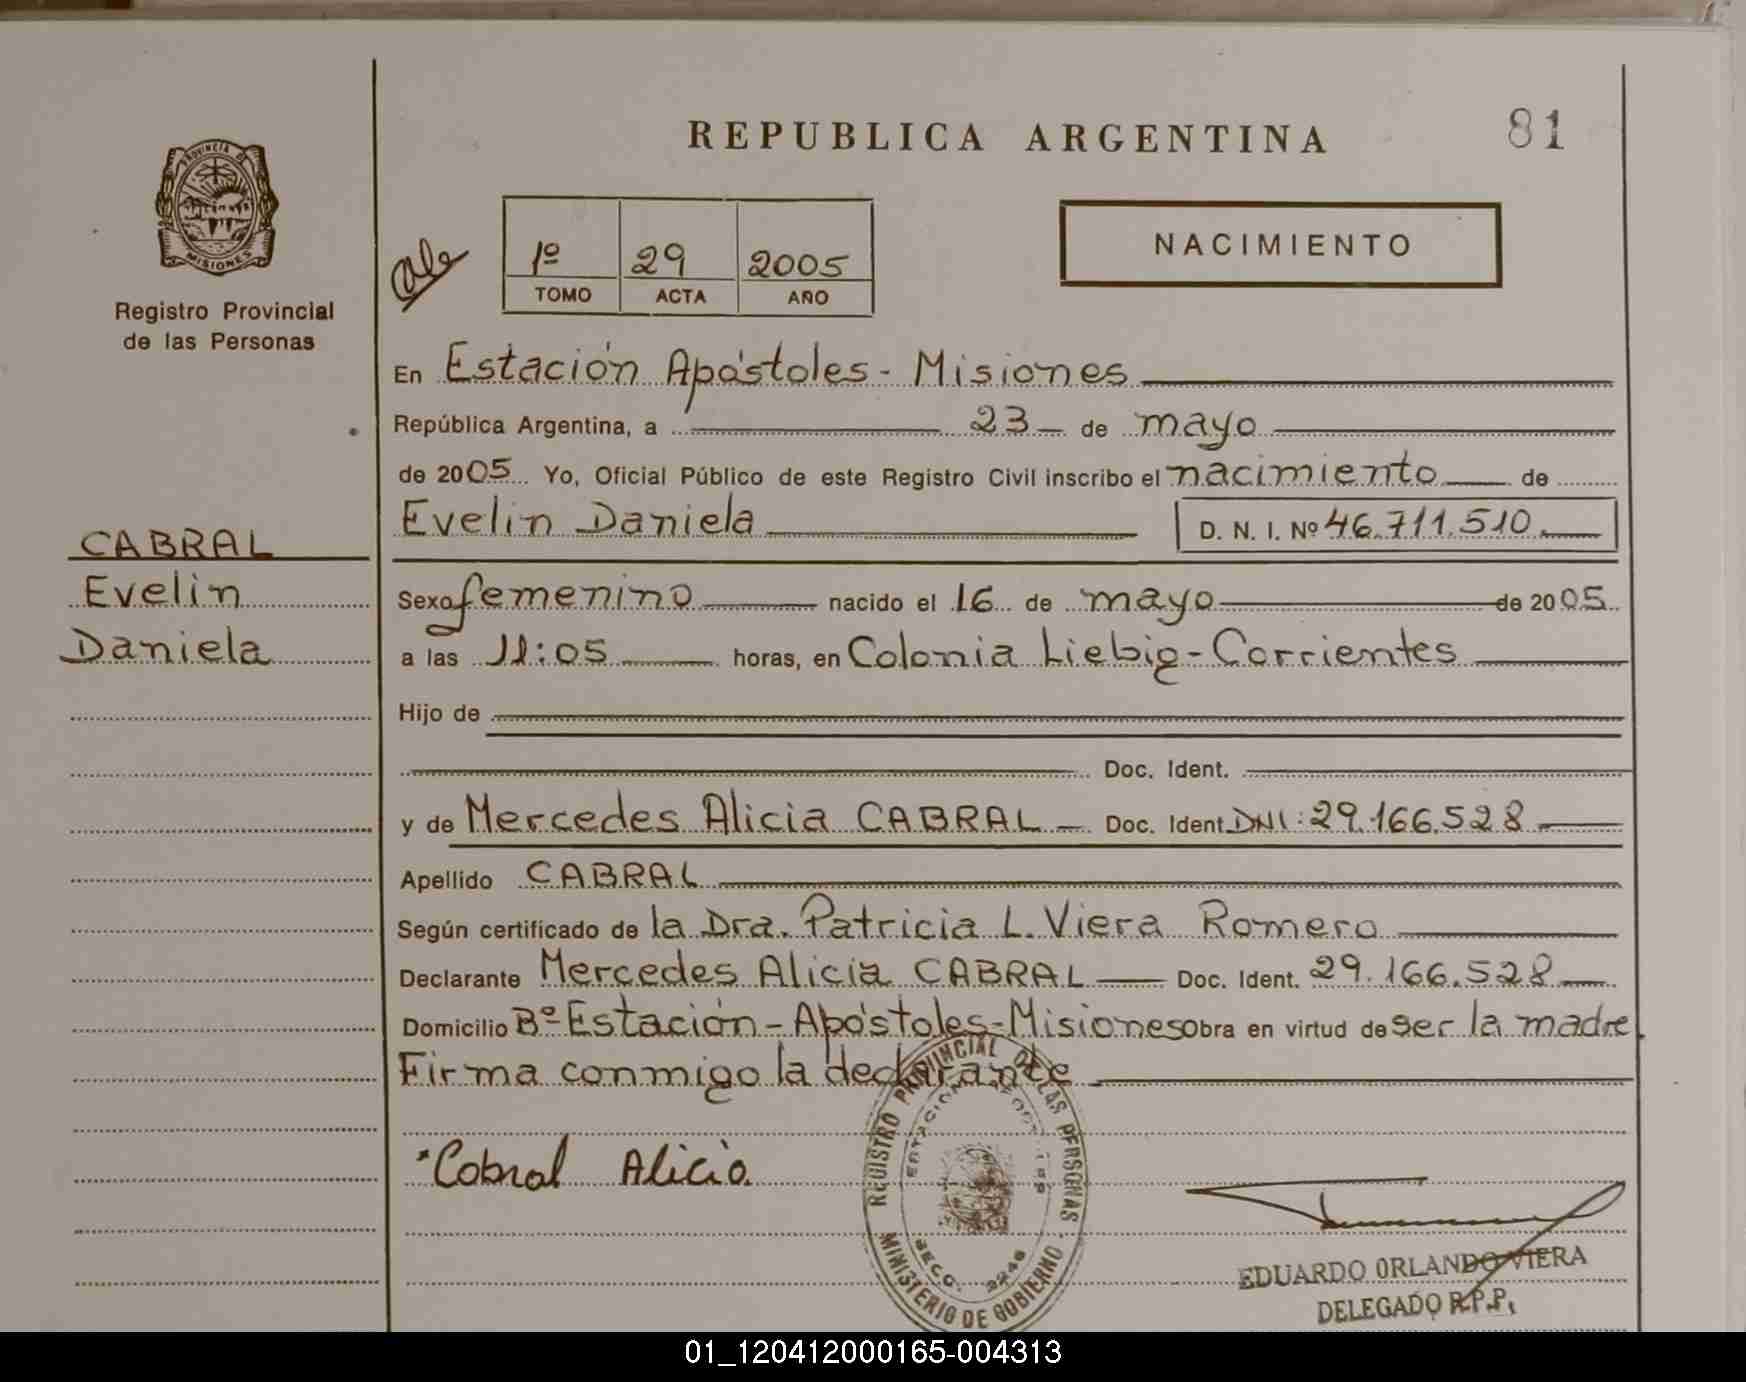 REPUBLICA ARGENTINA
81
PROVINCIA DE
MISIONES
Registro Provincial
de las Personas
1º 29 2005
TOMO ACTA AÑO
NACIMIENTO
En Estación Apóstoles - Misiones
República Argentina, a 23 de mayo
de 2005 Yo, Oficial Público de este Registro Civil inscribo el nacimiento de
Evelin Daniela D. N. I. Nº 46.711.510
CABRAL
Evelin
Daniela
Sexo femenino nacido el 16 de mayo de 2005
a las 11:05 horas, en Colonia Liebig - Corrientes
Hijo de
Doc. Ident.
y de Mercedes Alicia CABRAL Doc. Ident. DNI: 29.166.528
Apellido CABRAL
Según certificado de la Dra. Patricia L. Viera Romero
Declarante Mercedes Alicia CABRAL Doc. Ident. 29.166.528
Domicilio Bº Estación - Apóstoles - Misiones obra en virtud de ser la madre
Firma conmigo la declarante
Cabral Alicia
REGISTRO PROVINCIAL DE LAS PERSONAS
MINISTERIO DE GOBIERNO
EDUARDO ORLANDO VIERA
DELEGADO R.P.P.
01_120412000165-004313